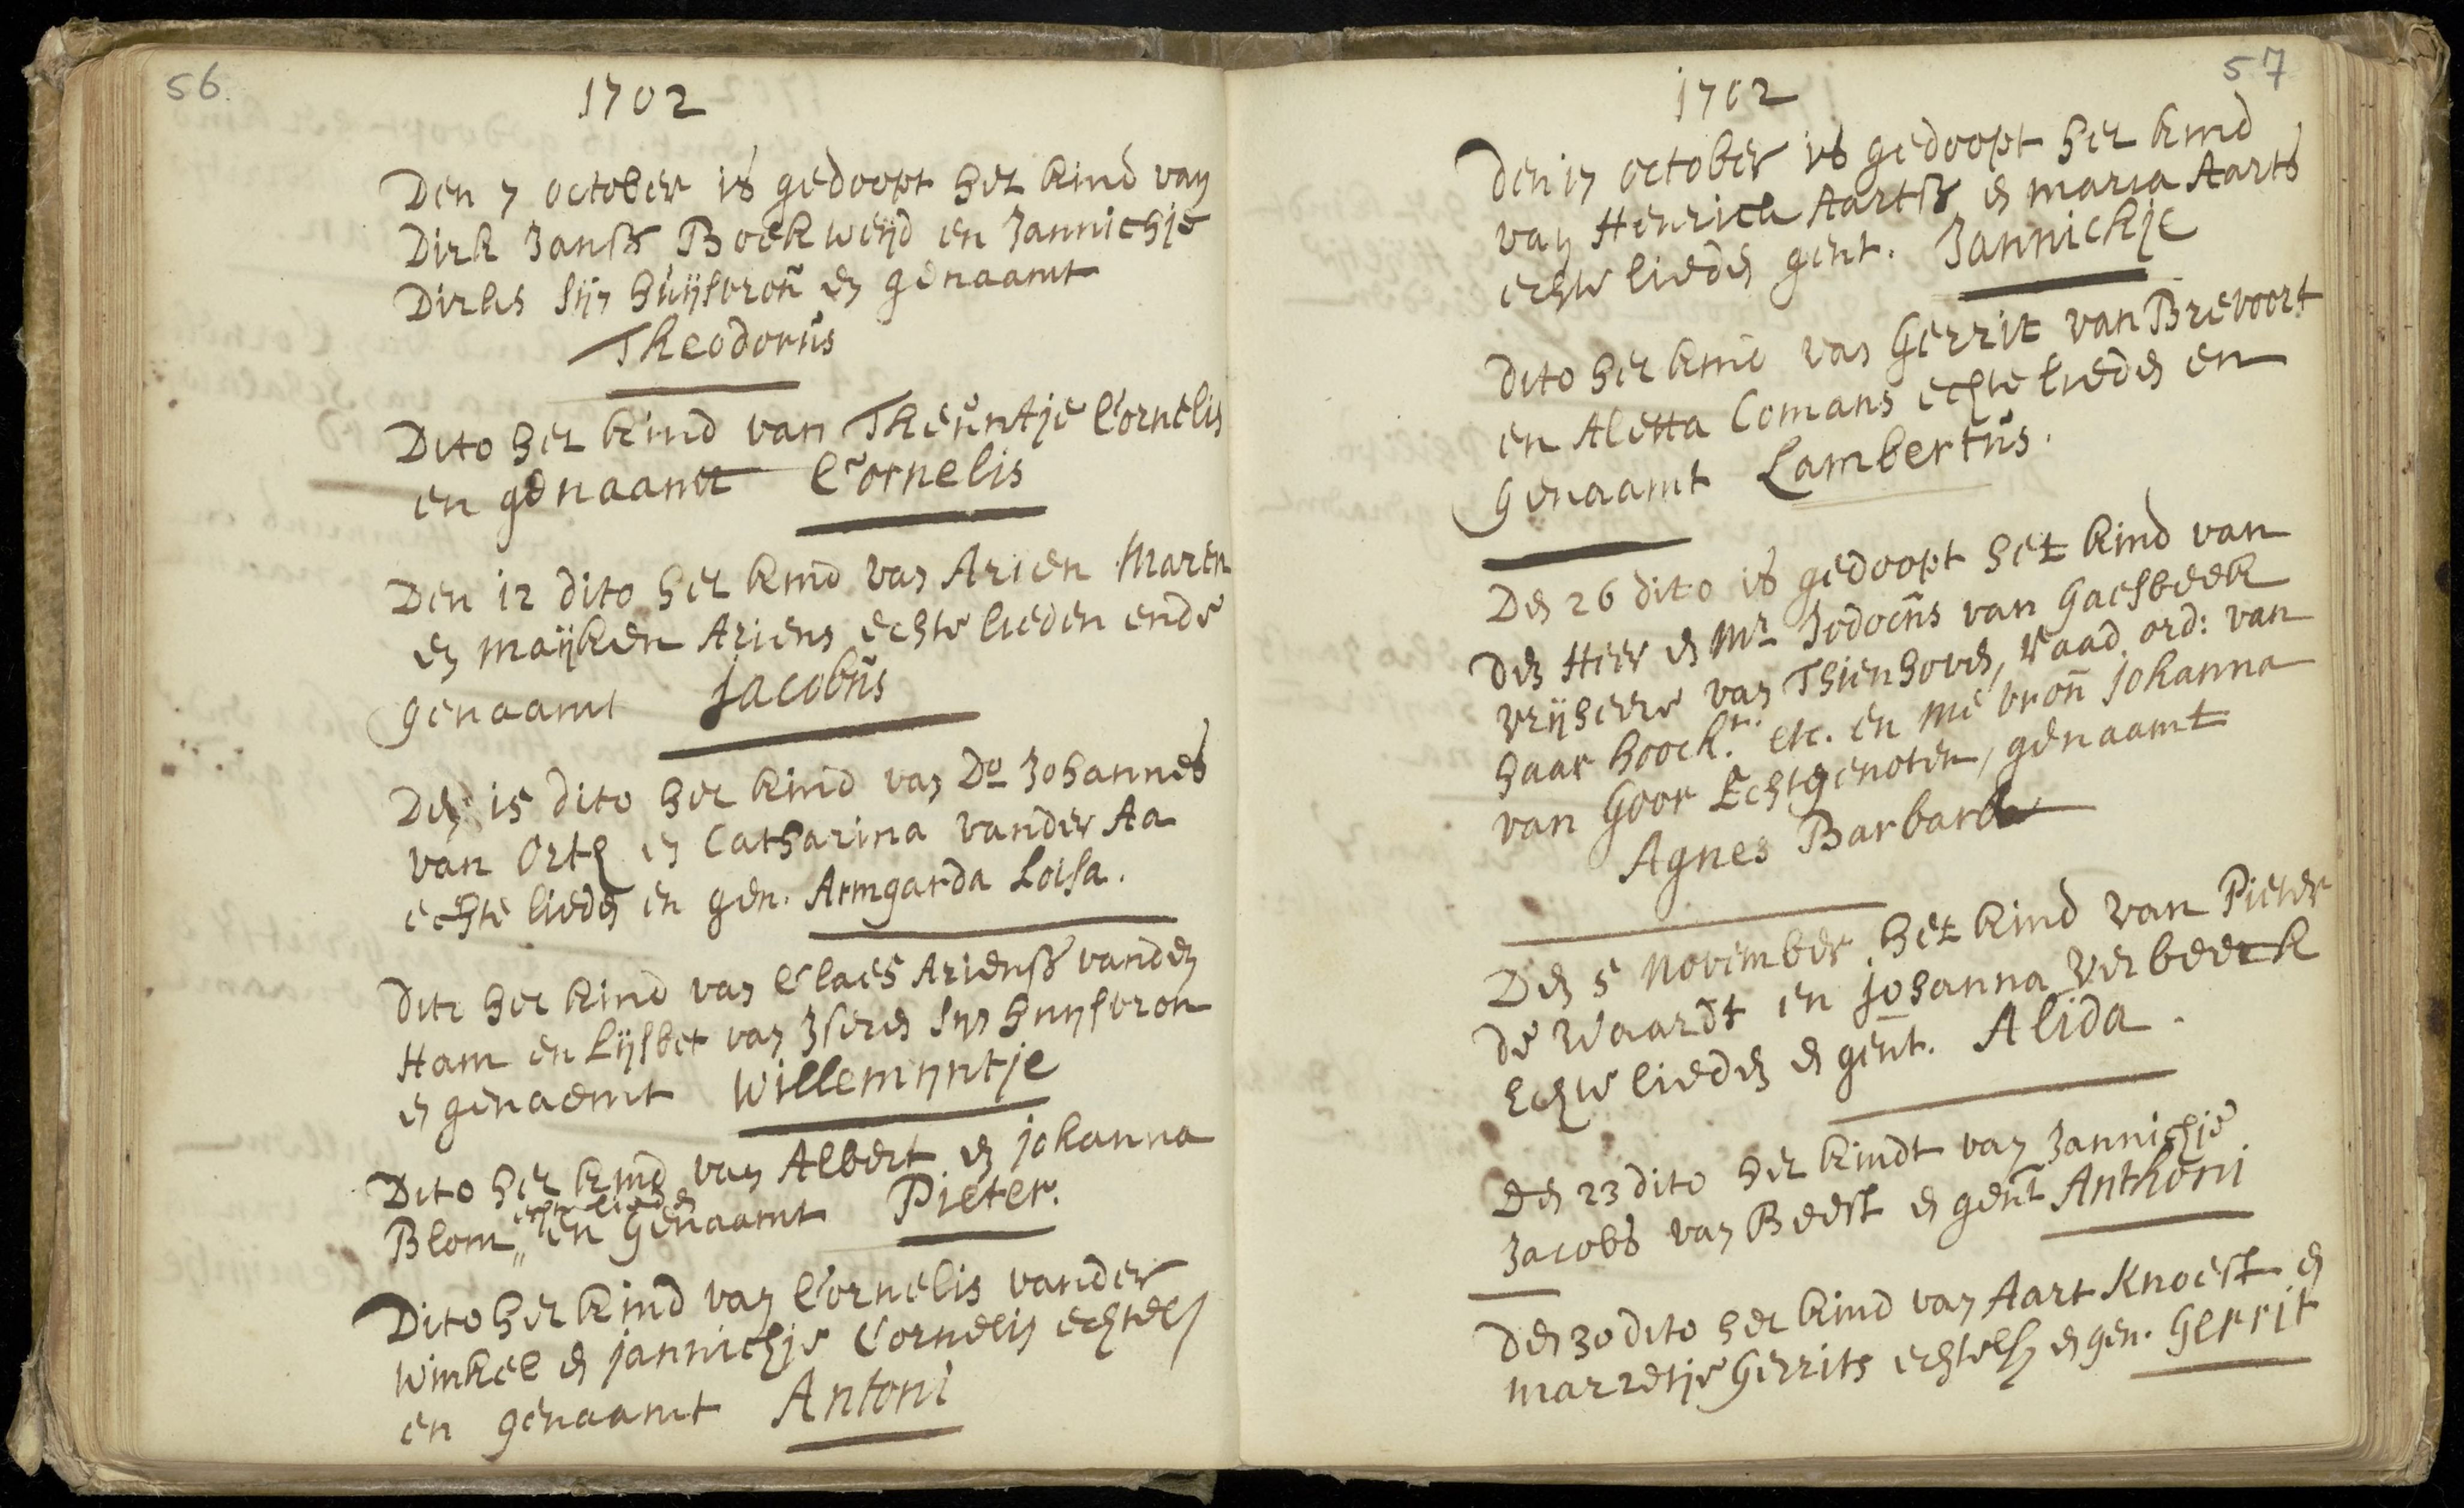 56.
1702
Den 7 october is gedoopt het kind van
Dirk Janss Boekweijd en Jannichje
Dirks sijn huijsvroũ en genaamt
Theodorus
Dito het kind van Theuntje Cornelis
en genaamt Cornelis
Den 12 dito het kind van Arien Marten
en Maijken Ariens echte lieden ende
genaamt Jacobus
Den 15 dito het kind van Do Johannes
van Orte en Catharina vander Aa
echte lieden en gen. Armgarda Loisa.
Dito het kind van Claes Arienss vanden
Ham en Lijsbet van Iseren sijn huijsvrou
en genaemt Willemijntje
Dito het kind van Albert en Johanna
echte lieden
Blom „ en Genaamt Pieter.
Dito het kind van Cornelis vander
Winkel en jannichje Cornelis echtel
en genaamt Antoni
57
1702
Den 17 october is gedoopt het kind
van Henrick Aartss en Maria Aarts
echte lieden gent. Jannickje
Dito het kind van Gerrit van Brevoort
en Aletta Comans echte lieden en
Genaamt Lambertus.
Den 26 dito is gedoopt het kind van
den Heer en Mr Jodocus van Gaesbeek
vrijheere van Thienhoven, Raad ord: van
haar hoock.n etc. en me vroũ Johanna
van Goor Echtgenoten, genaamt
Agnes Barbara
Den 5 November het kind van Pieter
de Waardt en Johanna Verbeeck
Echte lieden en gent. Alida.
Den 23 dito het kindt van Jannichje
Jacobs van Beest en gent Anthoni
Den 30 dito het kind van Aart Knoest en
Marretje Gerrits echtel en gen. Gerrit